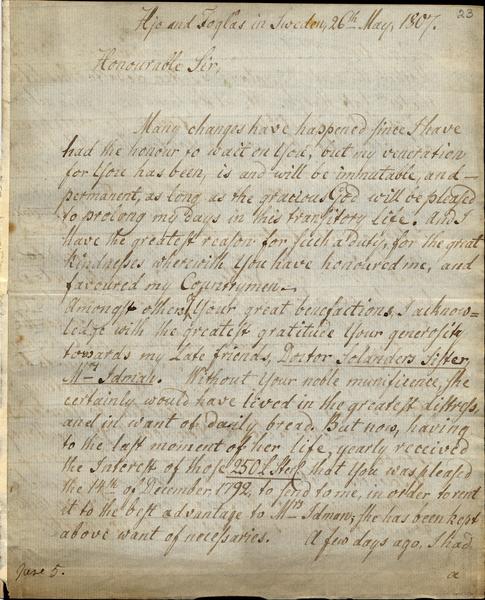 23
Hjo and Foglås in Sweden, 26th May, 1807.
Honourable Sir,
Many changes have happened since I have
had the honour to wait on You, but my veneration
for You has been, is and will be immutable, and
permanent, as long as the gracious God will be pleased
to prolong my Days in this transitory Life. And I
have the greatest reason for such a Duty, for the great
kindnesses wherewith You have honoured me, and
favoured my Countrymen.
Amongst others Your great benefactions, I acknow=
ledge with the greatest gratitude Your generosity
towards my Late friends, Doctor Solanders Sister,
Mrs Idman. Without Your noble munificence, she
certainly would have lived in the greatest distress,
and in want of dayly bread. But now, having
to the last moment of her life, yearly received
the Interest of those 250 £ Sterl that You was pleased
the 14th of December, 1792, to send to me, in order to rent
it to the best advantage to Mrs Idman, she has been kept
above want of necessaries. A few days ago, I had
June 5.
a